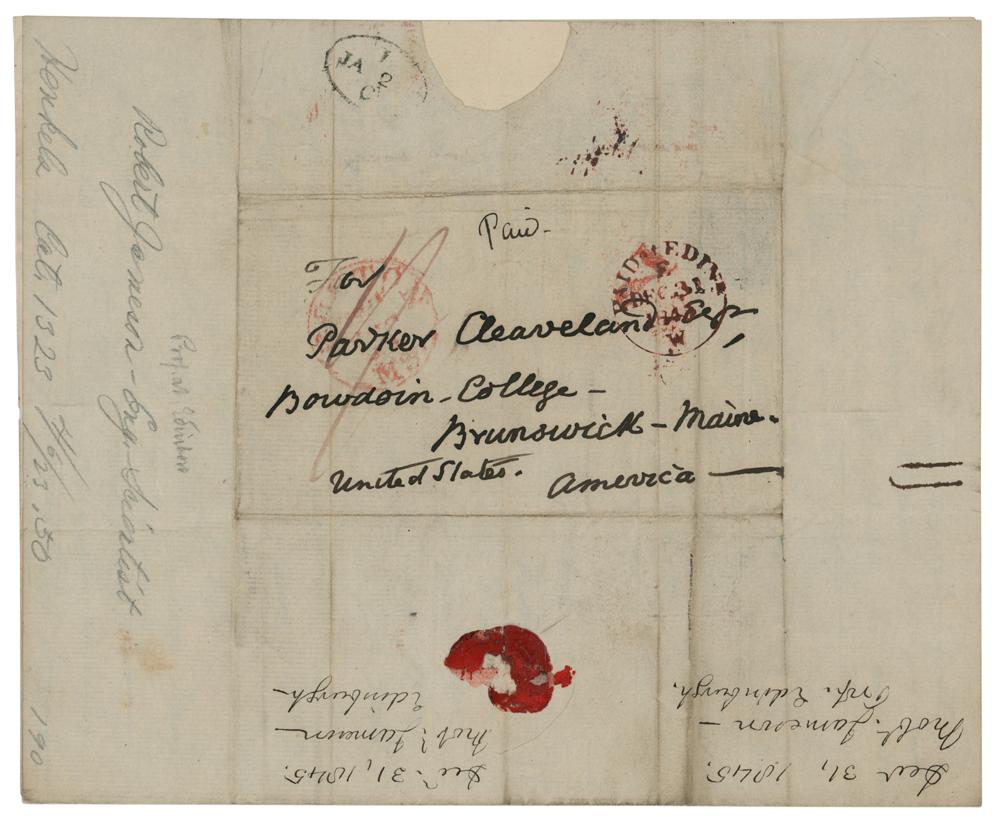 JA 2
Paid-
For
Parker Cleaveland Esqr,
Bowdoin-College-
Brunswick-Maine.
United States. America
PAID EDIN
DEC 31
1845
W
Robert Jameson-Eng. Scientist
Prof. at Edinboro
Henkels Cat. 1323 4/6/23 .50
190
Dec. 31, 1845.
Prof. Jameson-
Edinburgh-
Dec 31, 1845.
Prof. Jameson-
Edinburgh.